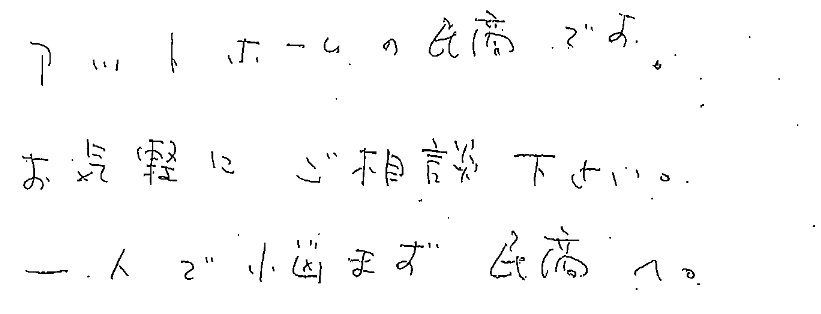 アットホームの民商です。
お気軽にご相談下さい。
一人で悩まず民商へ。